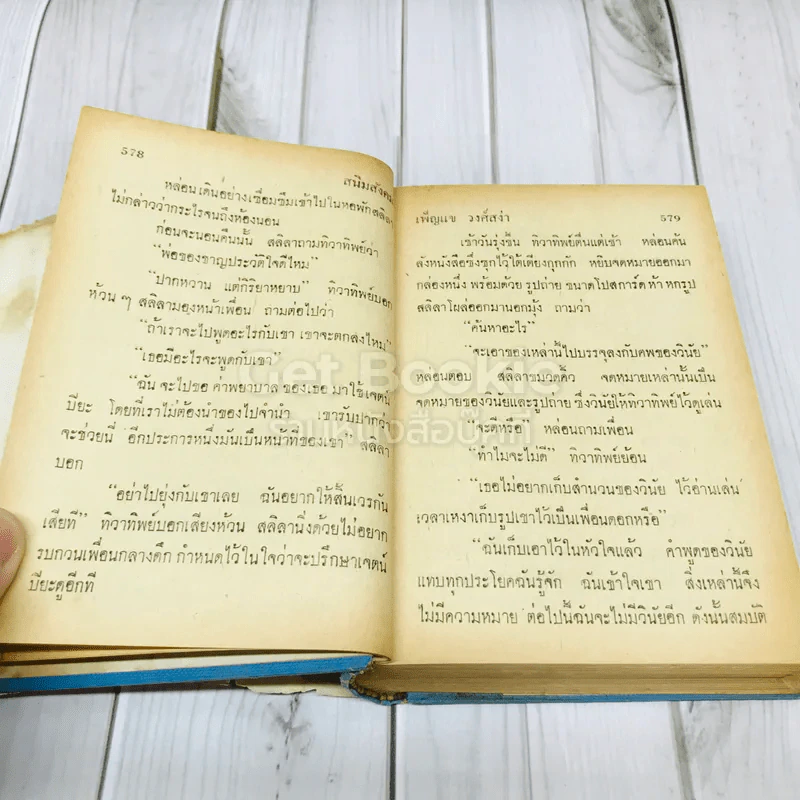 578
สนิมสังคม
หล่อนเดินอย่างเซื่อมซึมเข้าไปในหอพักสลิลา
ไม่กล่าวว่ากระไรจนถึงห้องนอน
ก่อนจะนอนคืนนั้น สลิลาถามทิวาทิพย์ว่า
“พ่อของชาญประวัติใจดีไหม”
“ปากหวาน แต่กิริยาหยาบ” ทิวาทิพย์บอก
ห้วน ๆ สลิลามองหน้าเพื่อน ถามต่อไปว่า
“ถ้าเราจะไปพูดอะไรกับเขา เขาจะตกลงไหม”
“เธอมีอะไรจะพูดกับเขา”
“ฉัน จะไปขอ ค่าพยาบาล ของเธอ มาใช้เจตน์
ปิยะ โดยที่เราไม่ต้องนำของไปจำนำ เขารับปากว่า
จะช่วยนี่ อีกประการหนึ่งมันเป็นหน้าที่ของเขา” สลิลา
บอก
“อย่าไปยุ่งกับเขาเลย ฉันอยากให้สิ้นเวรกัน
เสียที” ทิวาทิพย์บอกเสียงห้วน สลิลานิ่งด้วยไม่อยาก
รบกวนเพื่อนกลางดึก กำหนดไว้ในใจว่าจะปรึกษาเจตน์
ปิยะดูอีกที
เพ็ญแข วงศ์สง่า 579
เช้าวันรุ่งขึ้น ทิวาทิพย์ตื่นแต่เช้า หล่อนค้น
ลังหนังสือซึ่งซุกไว้ใต้เตียงกุกกัก หยิบจดหมายออกมา
กล่องหนึ่ง พร้อมด้วย รูปถ่าย ขนาดโปสการ์ด ห้า หกรูป
สลิลาโผล่ออกมานอกมุ้ง ถามว่า
“ค้นหาอะไร”
“จะเอาของเหล่านี้ไปบรรจุลงกับศพของวินัย”
หล่อนตอบ สลิลาขมวดคิ้ว จดหมายเหล่านั้นเป็น
จดหมายของวินัยและรูปถ่าย ซึ่งวินัยให้ทิวาทิพย์ไว้ดูเล่น
“จะดีหรือ” หล่อนถามเพื่อน
“ทำไมจะไม่ดี” ทิวาทิพย์ย้อน
“เธอไม่อยากเก็บสำนวนของวินัย ไว้อ่านเล่น
เวลาเหงาเก็บรูปเขาไว้เป็นเพื่อนดอกหรือ”
“ฉันเก็บเอาไว้ในหัวใจแล้ว คำพูดของวินัย
แทบทุกประโยคฉันรู้จัก ฉันเข้าใจเขา สิ่งเหล่านี้จึง
ไม่มีความหมาย ต่อไปนี้ฉันจะไม่มีวินัยอีก ดังนั้นสมบัติ